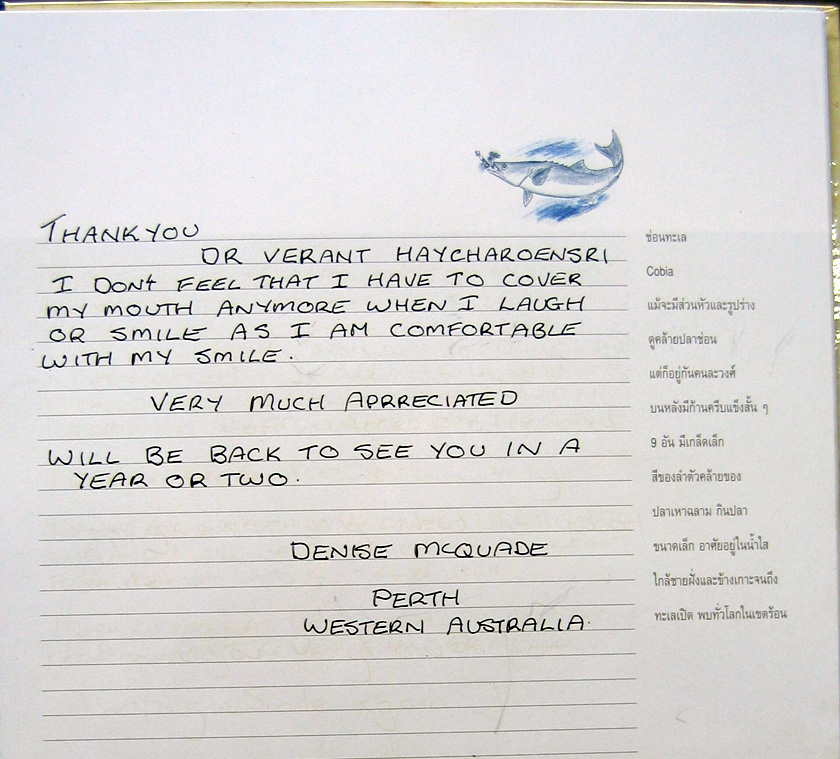 THANKYOU
DR VERANT HAYCHAROENSRI
I DON'T FEEL THAT I HAVE TO COVER
MY MOUTH ANYMORE WHEN I LAUGH
OR SMILE AS I AM COMFORTABLE
WITH MY SMILE.
VERY MUCH APPRECIATED
WILL BE BACK TO SEE YOU IN A
YEAR OR TWO.
DENISE MCQUADE
PERTH
WESTERN AUSTRALIA.
ช่อนทะเล
Cobia
แม้จะมีส่วนหัวและรูปร่าง
ดูคล้ายปลาช่อน
แต่ก็อยู่กันคนละวงศ์
บนหลังมีก้านครีบแข็งสั้น ๆ
9 อัน มีเกล็ดเล็ก
สีของลำตัวคล้ายของ
ปลาเหาฉลาม กินปลา
ขนาดเล็ก อาศัยอยู่ในน้ำใส
ใกล้ชายฝั่งและข้างเกาะจนถึง
ทะเลเปิด พบทั่วโลกในเขตร้อน